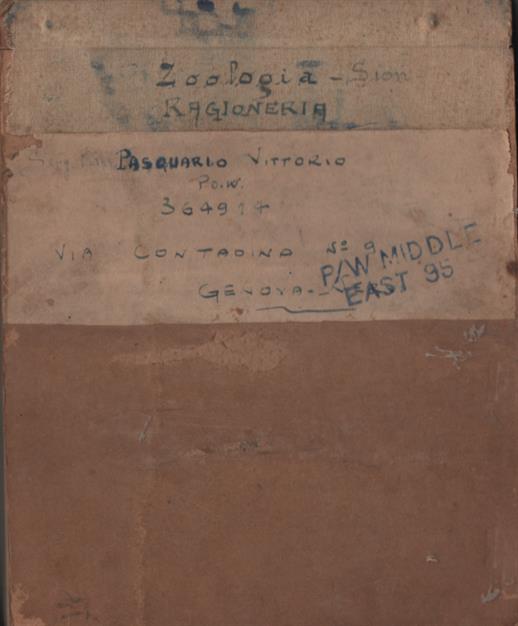 Zoologia - Sion
RAGIONERIA
PASQUARIO VITTORIO
P.O.W.
364914
VIA CONTADINO Nº 9
GENOVA
P/W MIDDLE
EAST 95